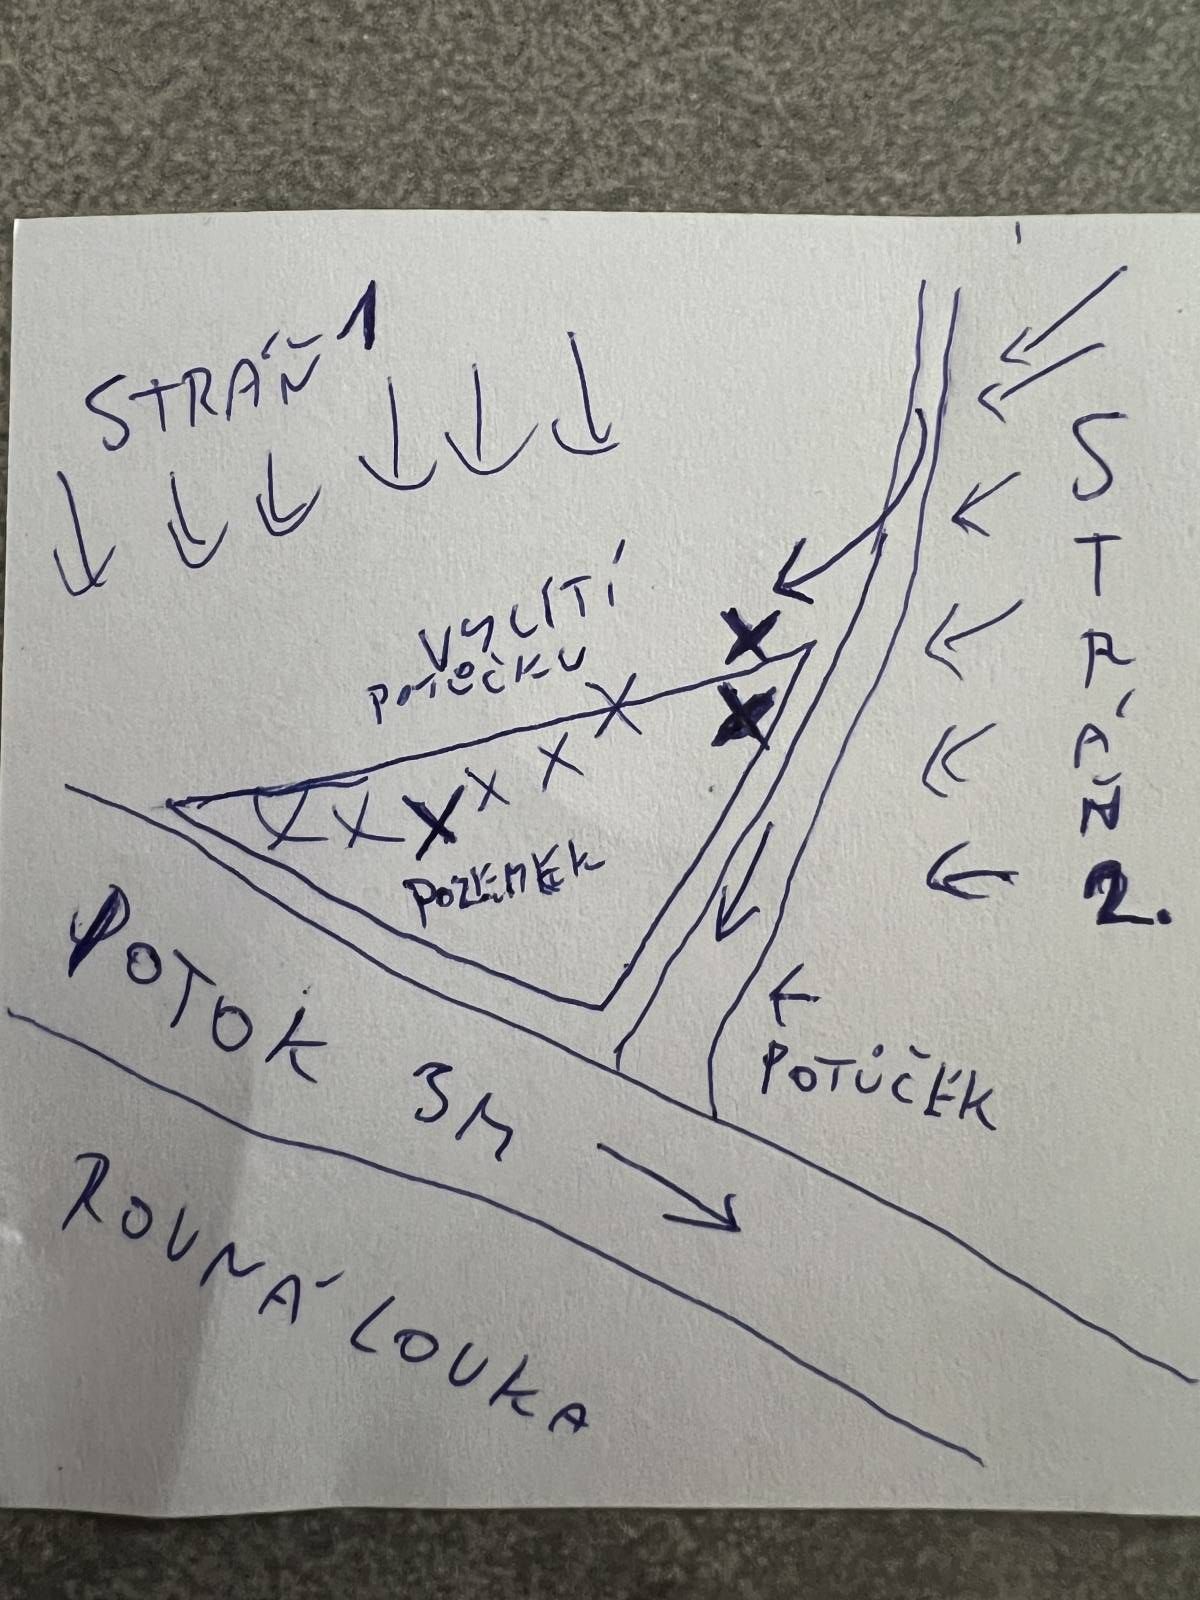 STRÁŇ 1
VYLÍTÍ
POTŮČKU
POZEMEK
POTOK 3M
POTŮČEK
ROVNÁ LOUKA
STRÁŇ 2.